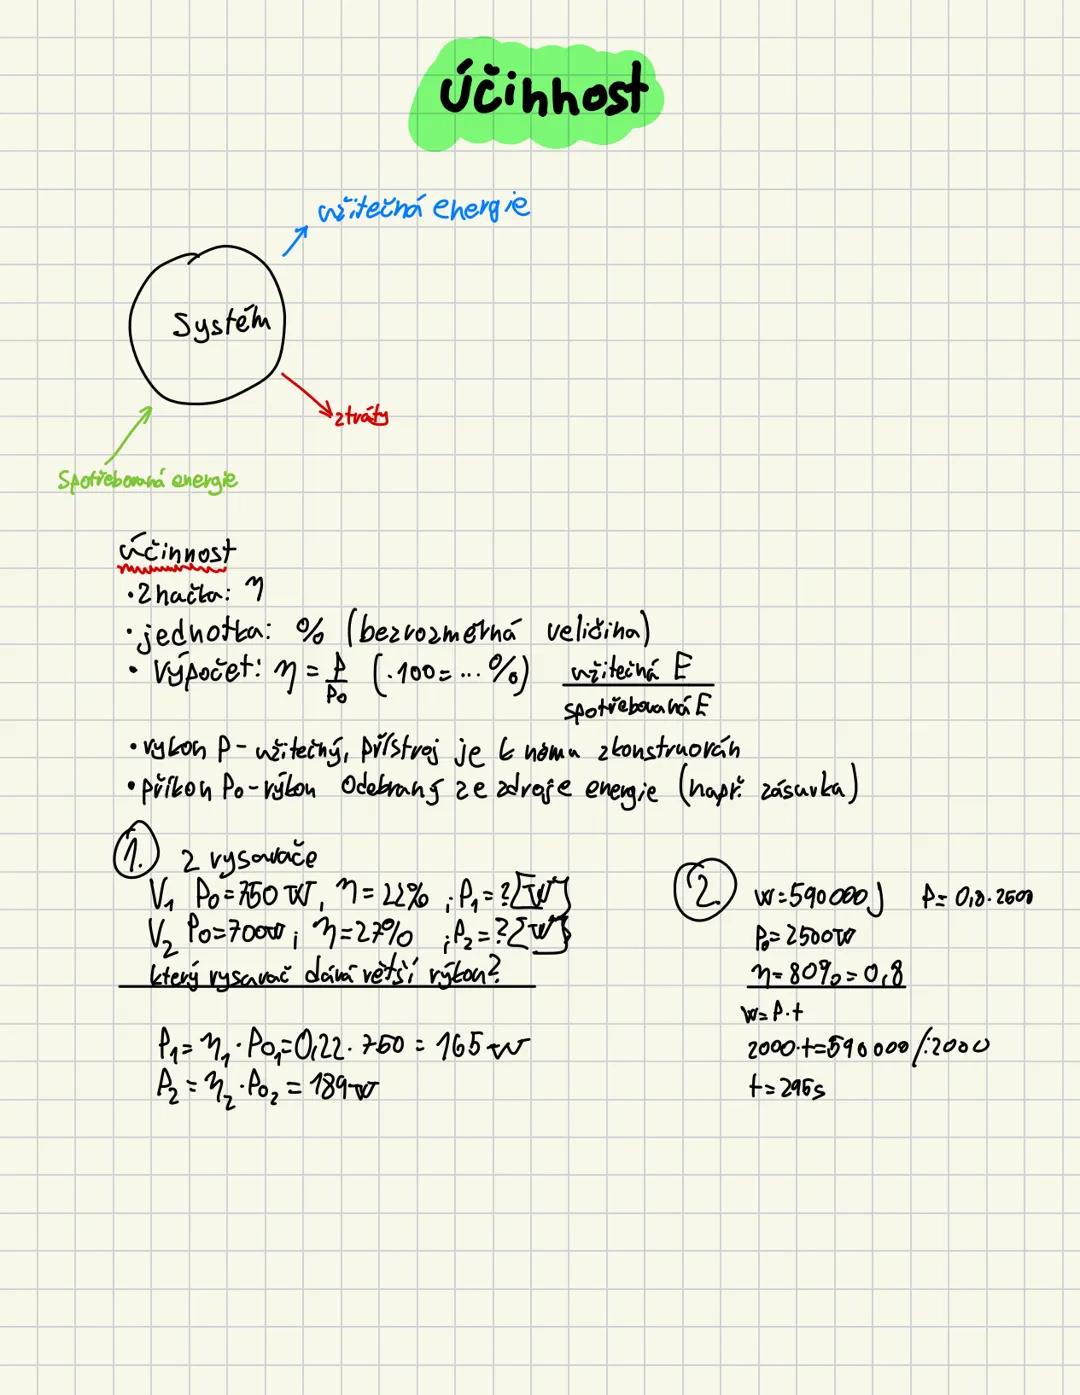 Účinnost
užitečná energie
Systém
ztráty
Spotřebovaná energie
účinnost
• značka: η
• jednotka: % (bezrozměrná veličina)
• Výpočet: η = P/P₀ (·100 = ... %) užitečná E / spotřebovaná E
• výkon P - užitečný, přístroj je k němu zkonstruován
• příkon P₀ - výkon odebraný ze zdroje energie (např. zásuvka)
1. 2 vysavače
V₁ P₀ = 750 W, η = 22% ; P₁ = ? [W]
V₂ P₀ = 700W ; η = 27% ; P₂ = ? [W]
který vysavač dává větší výkon?
P₁ = η₁ · P₀₁ = 0,22 · 750 = 165 W
P₂ = η₂ · P₀₂ = 189 W
2. W = 590 000 J P = 0,8 · 2500
P₀ = 2500 W
η = 80% = 0,8
W = P · t
2000 · t = 590 000 /:2000
t = 295 s